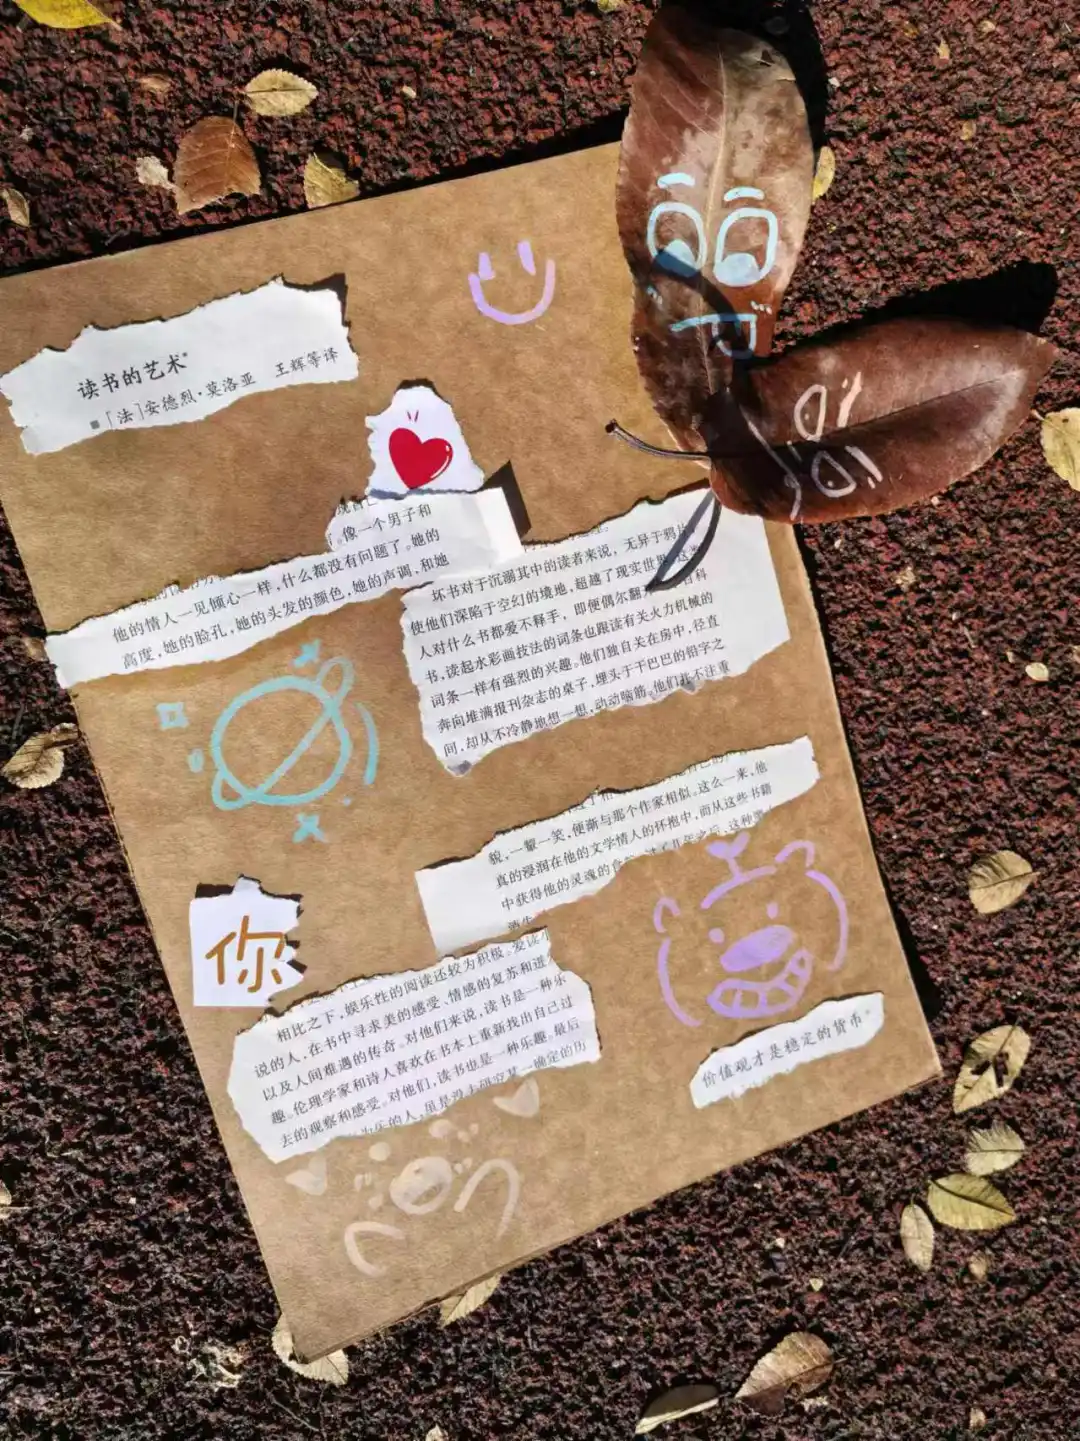 读书的艺术*
■[法]安德烈·莫洛亚 王辉等译
像一个男子和
他的情人一见倾心一样，什么都没有问题了。她的
高度，她的脸孔，她的头发的颜色，她的声调，和她
坏书对于沉溺其中的读者来说，无异于鸦片
使他们深陷于空幻的境地，超越了现实世界
人对什么书都爱不释手，即便偶尔翻 百科
书，读起水彩画技法的词条也跟读有关火力机械的
词条一样有强烈的兴趣。他们独自关在房中，径直
奔向堆满报刊杂志的桌子，埋头于干巴巴的铅字之
间，却从不冷静地想一想，动动脑筋。他们并不注重
貌，一颦一笑，便渐与那个作家相似。这么一来，他
真的浸润在他的文学情人的怀抱中，而从这些书籍
中获得他的灵魂的食
你
相比之下，娱乐性的阅读还较为积极。爱读小
说的人，在书中寻求美的感受、情感的复苏和
以及人间难遇的传奇。对他们来说，读书是一种乐
趣。伦理学家和诗人喜欢在书本上重新找出自己过
去的观察和感受。对他们，读书也是一种乐趣。最后
价值观才是稳定的货币*